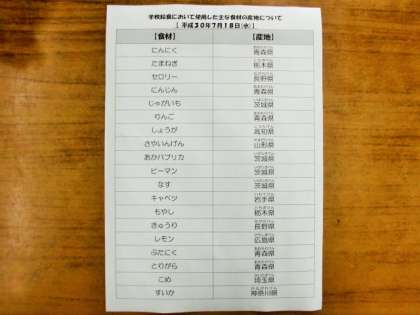 学校給食において使用した主な食材の産地について
【 平成30年7月18日(水) 】
【食材】 【産地】
にんにく 青森県
たまねぎ 栃木県
セロリー 長野県
にんじん 青森県
じゃがいも 茨城県
りんご 青森県
しょうが 高知県
さやいんげん 山形県
あかパプリカ 茨城県
ピーマン 茨城県
なす 茨城県
キャベツ 岩手県
もやし 栃木県
きゅうり 長野県
レモン 広島県
ぶたにく 青森県
とりがら 青森県
こめ 埼玉県
すいか 神奈川県